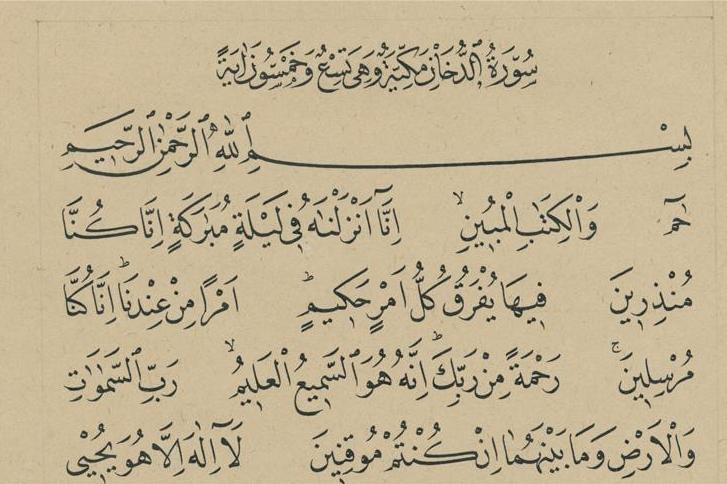 سُورَةُ الدُّخَانِ مَكِّيَّةٌ وَهِيَ تِسْعٌ وَخَمْسُونَ اٰيَةً
بِسْمِ اللّٰهِ الرَّحْمٰنِ الرَّحِيمِ
حٰمٓ وَالْكِتَابِ الْمُبِينِۙ اِنَّٓا اَنْزَلْنَاهُ فِي لَيْلَةٍ مُبَارَكَةٍ اِنَّا كُنَّا
مُنْذِرِينَ فِيهَا يُفْرَقُ كُلُّ اَمْرٍ حَكِيمٍۜ اَمْرًا مِنْ عِنْدِنَاۜ اِنَّا كُنَّا
مُرْسِلِينَۚ رَحْمَةً مِنْ رَبِّكَۜ اِنَّهُ هُوَ السَّمِيعُ الْعَلِيمُۙ رَبِّ السَّمٰوَاتِ
وَالْاَرْضِ وَمَا بَيْنَهُمَا اِنْ كُنْتُمْ مُوقِنِينَ لَٓا اِلٰهَ اِلَّا هُوَ يُحْيِي